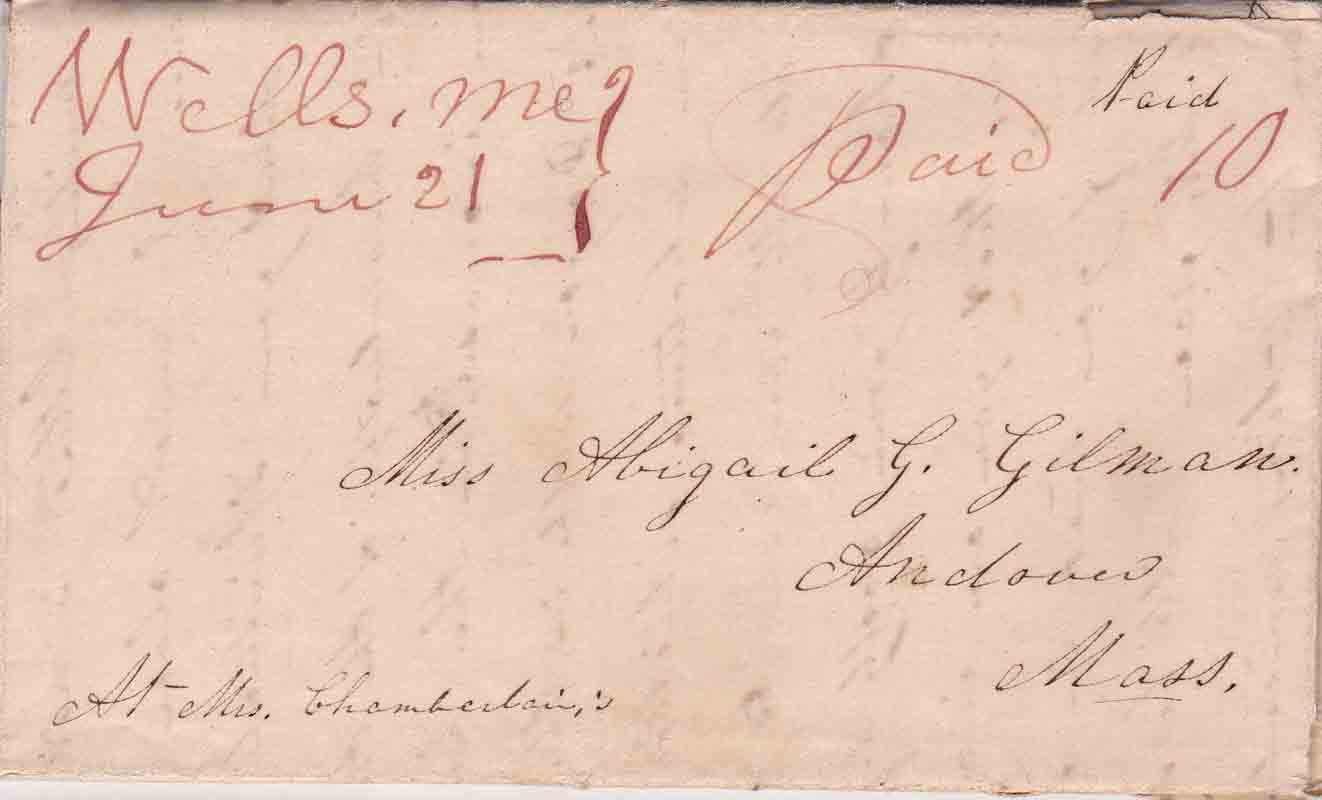 Wells, me
June 21
Paid
Paid
10
Miss Abigail G. Gilman.
Andover
Mass.
At Mrs. Chamberlain,'s